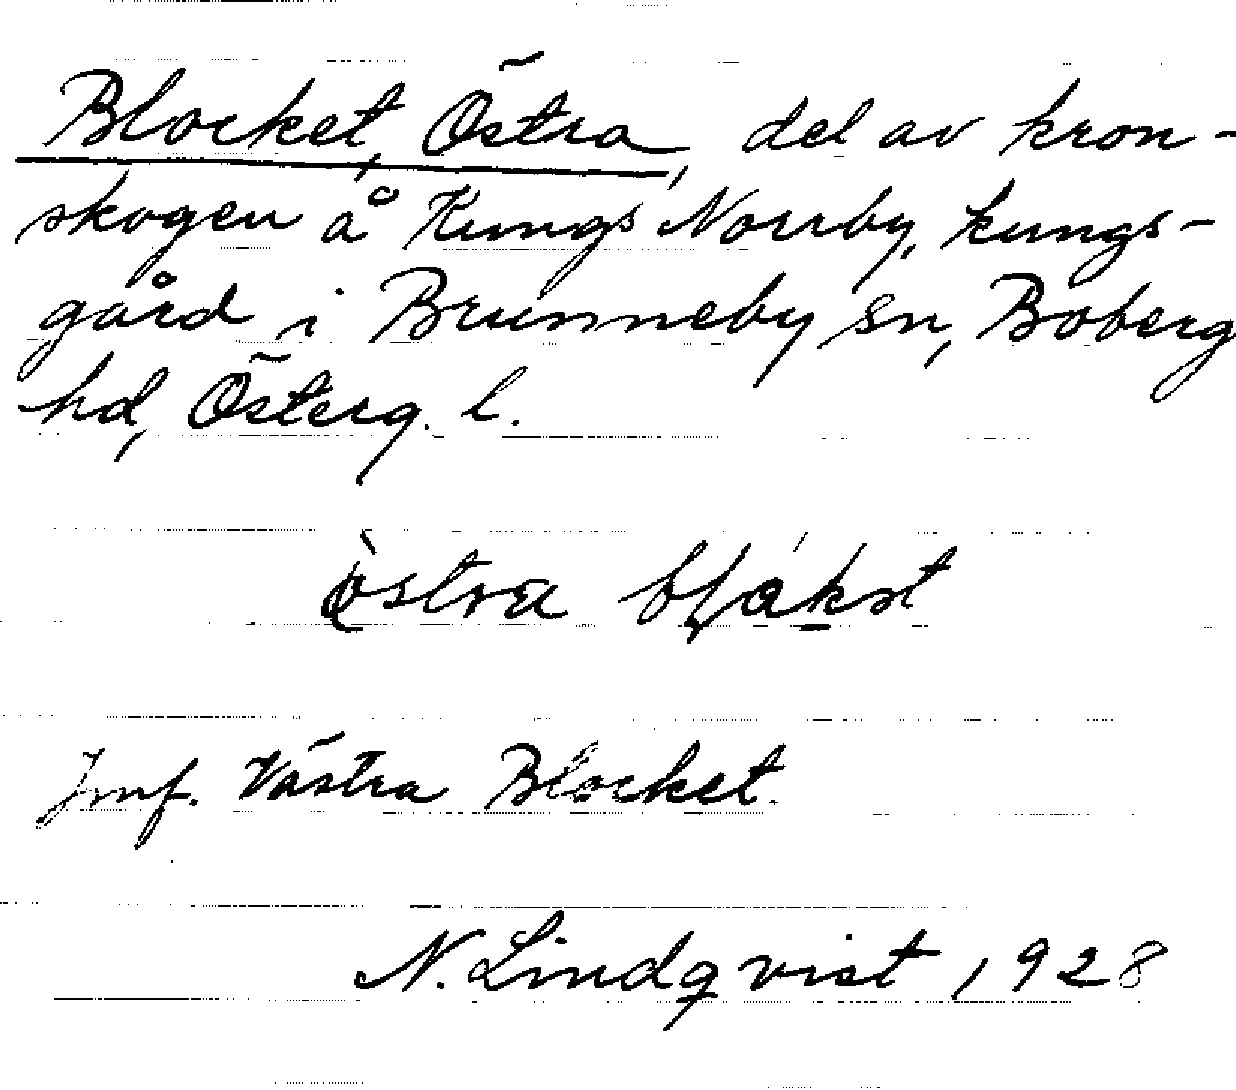 Blocket, Östra, del av kron-
skogen å Kungs Norrby, kungs-
gård i Brunneby sn, Boberg
hd, Österg. l.
östra
Jmf. Västra Blocket.
N. Lindqvist 1928